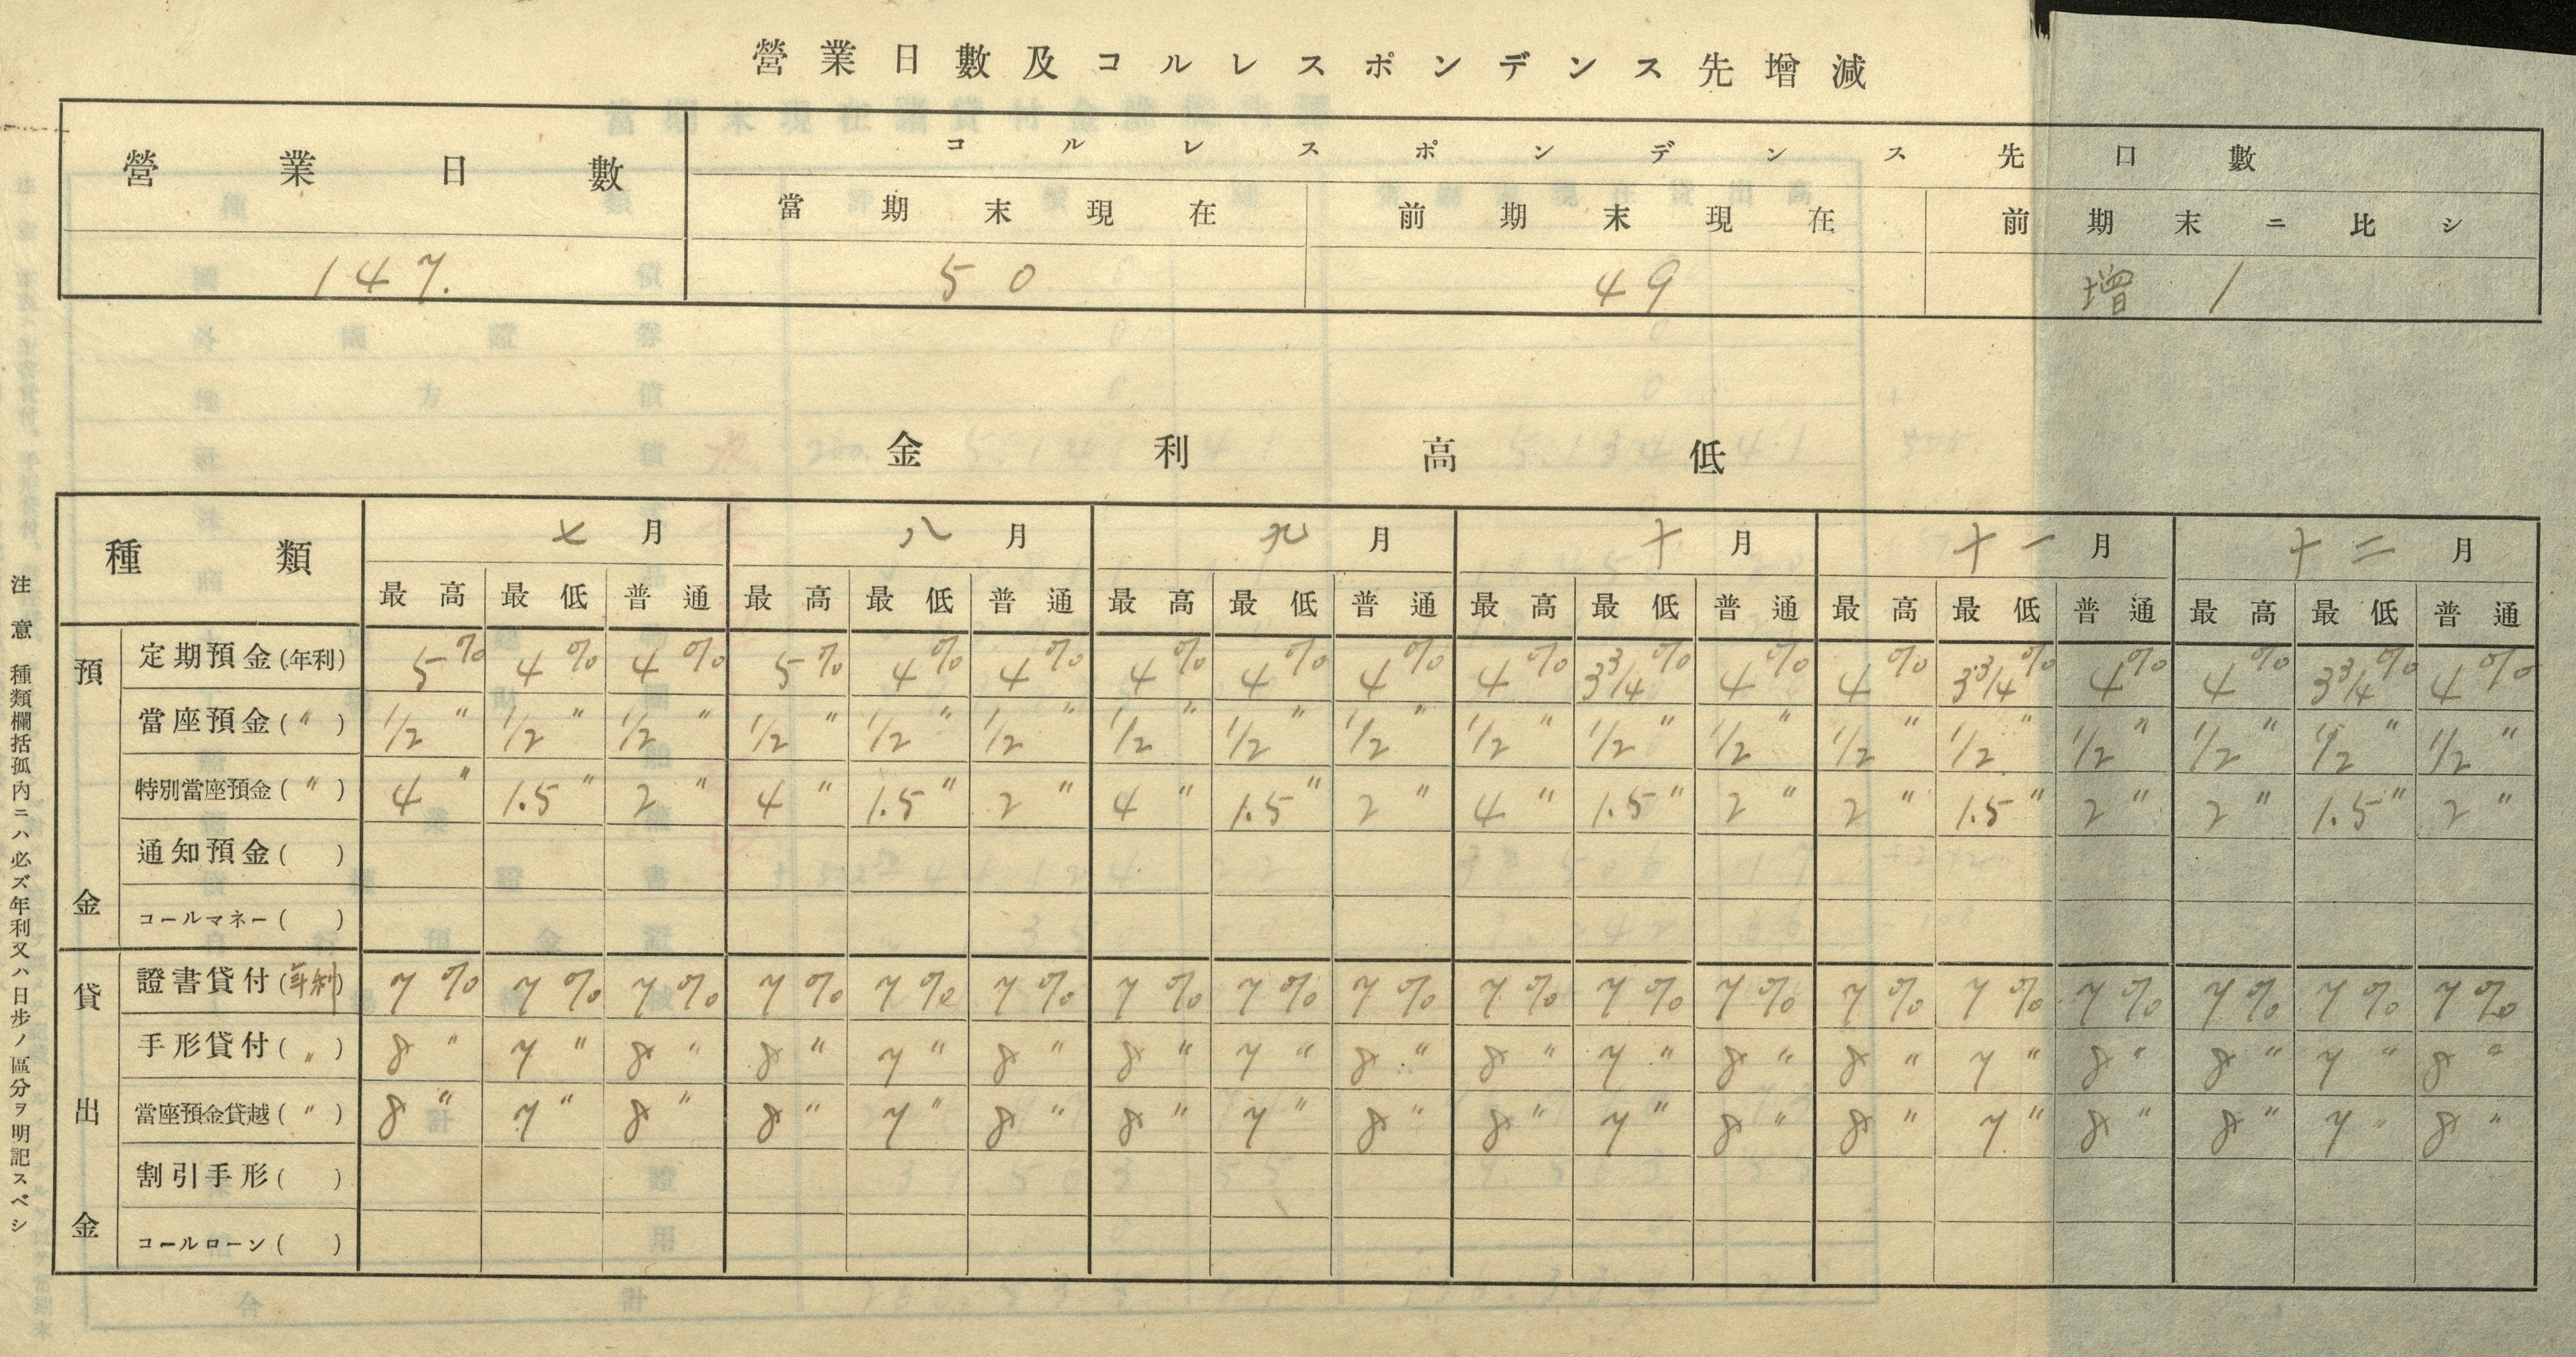 營業日數及コルレスポンデンス先增減
營業日數 コルレスポンデンス先口數
當期末現在 前期末現在 前期末ニ比シ
147. 50 49 增 1
金利高低
種類 七月 八月 九月 十月 十一月 十二月
最高 最低 普通 最高 最低 普通 最高 最低 普通 最高 最低 普通 最高 最低 普通 最高 最低 普通
預金
定期預金(年利) 5% 4% 4% 5% 4% 4% 4% 4% 4% 4% 3 3/4% 4% 4% 3 3/4% 4% 4% 3 3/4% 4%
當座預金(〃) 1/2〃 1/2〃 1/2〃 1/2〃 1/2〃 1/2〃 1/2〃 1/2〃 1/2〃 1/2〃 1/2〃 1/2〃 1/2〃 1/2〃 1/2〃 1/2〃 1/2〃 1/2〃
特別當座預金(〃) 4〃 1.5〃 2〃 4〃 1.5〃 2〃 4〃 1.5〃 2〃 4〃 1.5〃 2〃 2〃 1.5〃 2〃 2〃 1.5〃 2〃
通知預金( )
コールマネー( )
貸出金
證書貸付(年利) 7% 7% 7% 7% 7% 7% 7% 7% 7% 7% 7% 7% 7% 7% 7% 7% 7% 7%
手形貸付(〃) 8〃 7〃 8〃 8〃 7〃 8〃 8〃 7〃 8〃 8〃 7〃 8〃 8〃 7〃 8〃 8〃 7〃 8〃
當座預金貸越(〃) 8〃 7〃 8〃 8〃 7〃 8〃 8〃 7〃 8〃 8〃 7〃 8〃 8〃 7〃 8〃 8〃 7〃 8〃
割引手形( )
コールローン( )
注意 種類欄括孤內ニハ必ズ年利又ハ日步ノ區分ヲ明記スベシ